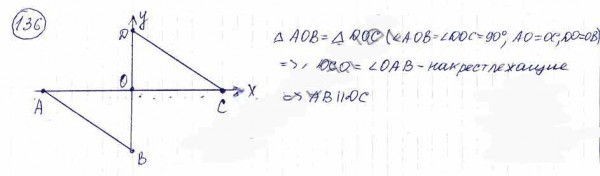 136
y
D
O
x
A
C
B
△ AOB = △ DOC (∠AOB=∠DOC=90°, AO=OC, DO=OB)
=> ∠DCO = ∠OAB - накрестлежащие
=> AB || DC